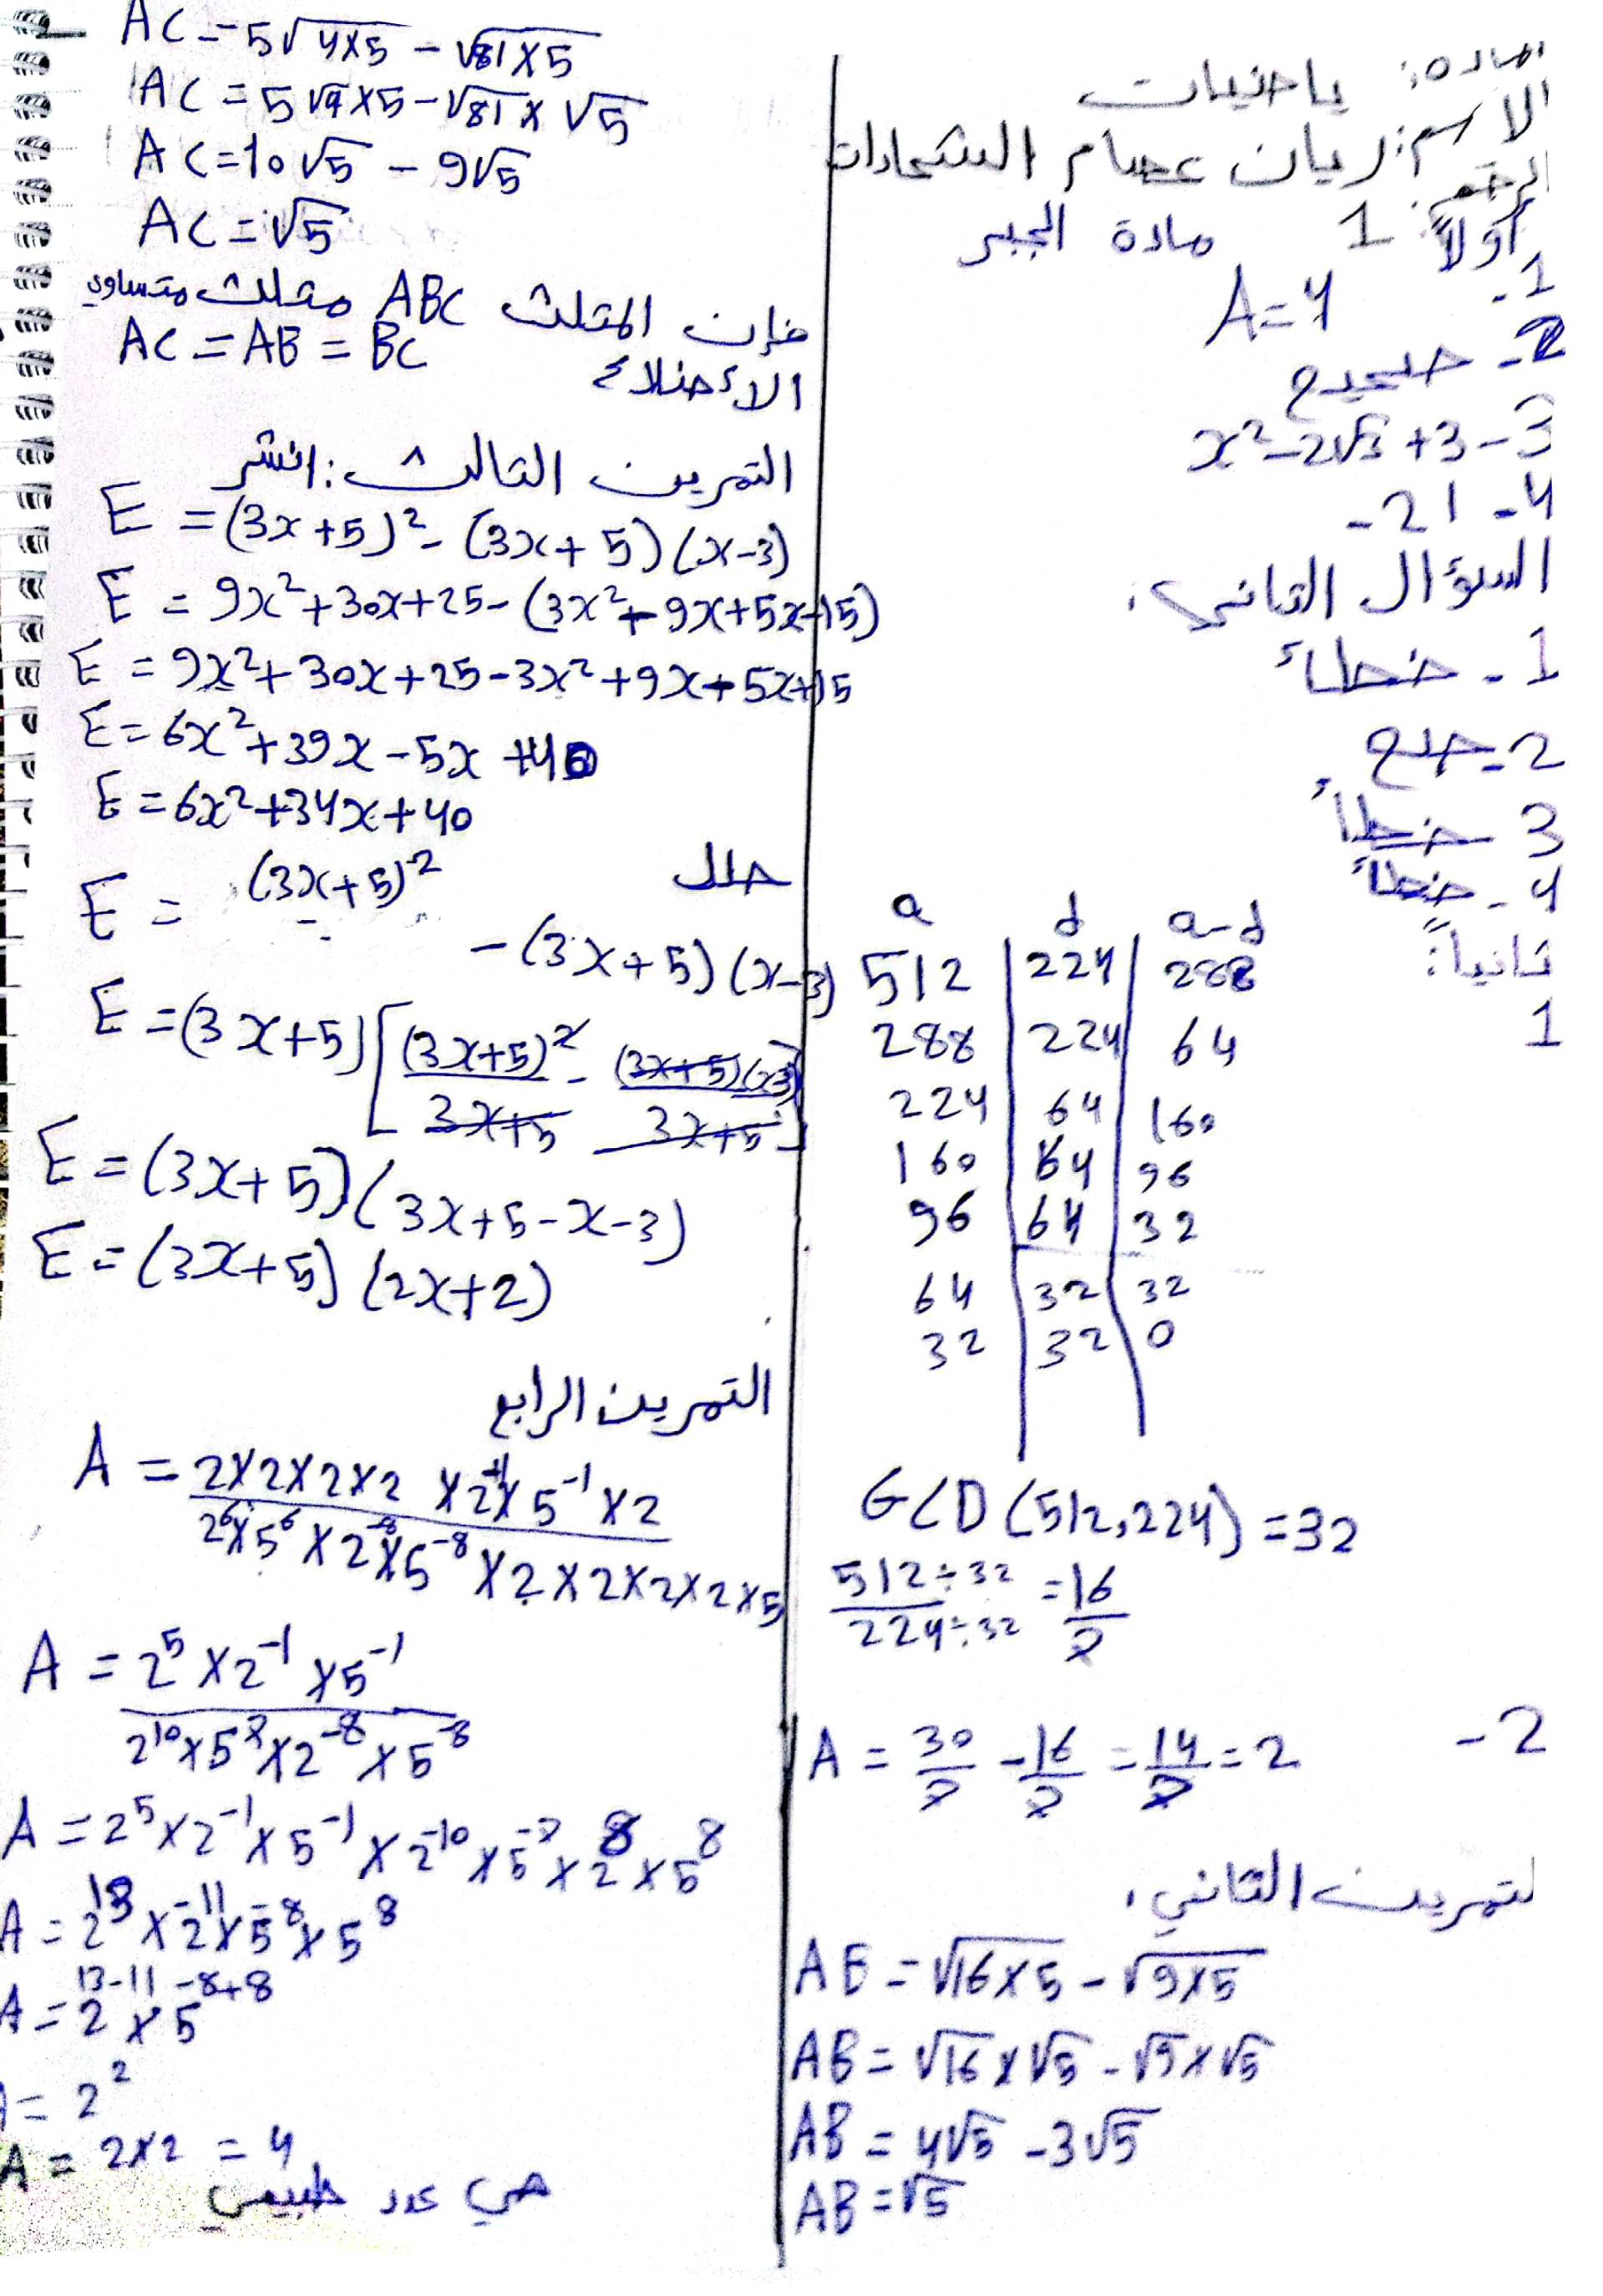 المادة: رياضيات
الاسم: ريان عصام الشحادات
الرقم: 1 مادة الجبر
أولاً:
1-
A=4
2- صحيح
3- x²-2√3+3
4- 21-
السؤال الثاني:
1- خطأ
2- صح
3 خطأ
4- خطأ
ثانياً:
1
a | d | a-d
512 | 224 | 288
288 | 224 | 64
224 | 64 | 160
160 | 64 | 96
96 | 64 | 32
64 | 32 | 32
32 | 32 | 0
GCD (512,224) = 32
512÷32 / 224÷32 = 16/7
2- A = 30/7 - 16/7 = 14/7 = 2
لتمرين الثاني:
AB = √16×5 - √9×5
AB = √16×√5 - √9×√5
AB = 4√5 - 3√5
AB = √5
AC = 5√4×5 - √81×5
AC = 5√4×5 - √81×√5
AC = 10√5 - 9√5
AC = √5
فإن المثلث ABC مثلث متساوي
الأضلاع AC = AB = BC
التمرين الثالث: انشر
E = (3x+5)² - (3x+5)(x-3)
E = 9x²+30x+25-(3x²-9x+5x-15)
E = 9x²+30x+25-3x²+9x-5x+15
E = 6x²+39x-5x+40
E = 6x²+34x+40
حلل
E = (3x+5)²
-(3x+5)(x-3)
E = (3x+5)[(3x+5)²/3x+5 - (3x+5)(x-3)/3x+5]
E = (3x+5)(3x+5-x-3)
E = (3x+5)(2x+2)
التمرين الرابع
A = 2×2×2×2×2⁻¹×5⁻¹×2 / 2⁶×5⁶×2⁻⁸×5⁻⁸×2×2×2×2×5
A = 2⁵×2⁻¹×5⁻¹ / 2¹⁰×5⁷×2⁻⁸×5⁻⁸
A = 2⁵×2⁻¹×5⁻¹×2⁻¹⁰×5⁻⁷×2⁸×5⁸
A = 2¹³×2⁻¹¹×5⁻⁸×5⁸
A = 2¹³⁻¹¹×5⁻⁸⁺⁸
A = 2²
A = 2×2 = 4
هي عدد طبيعي